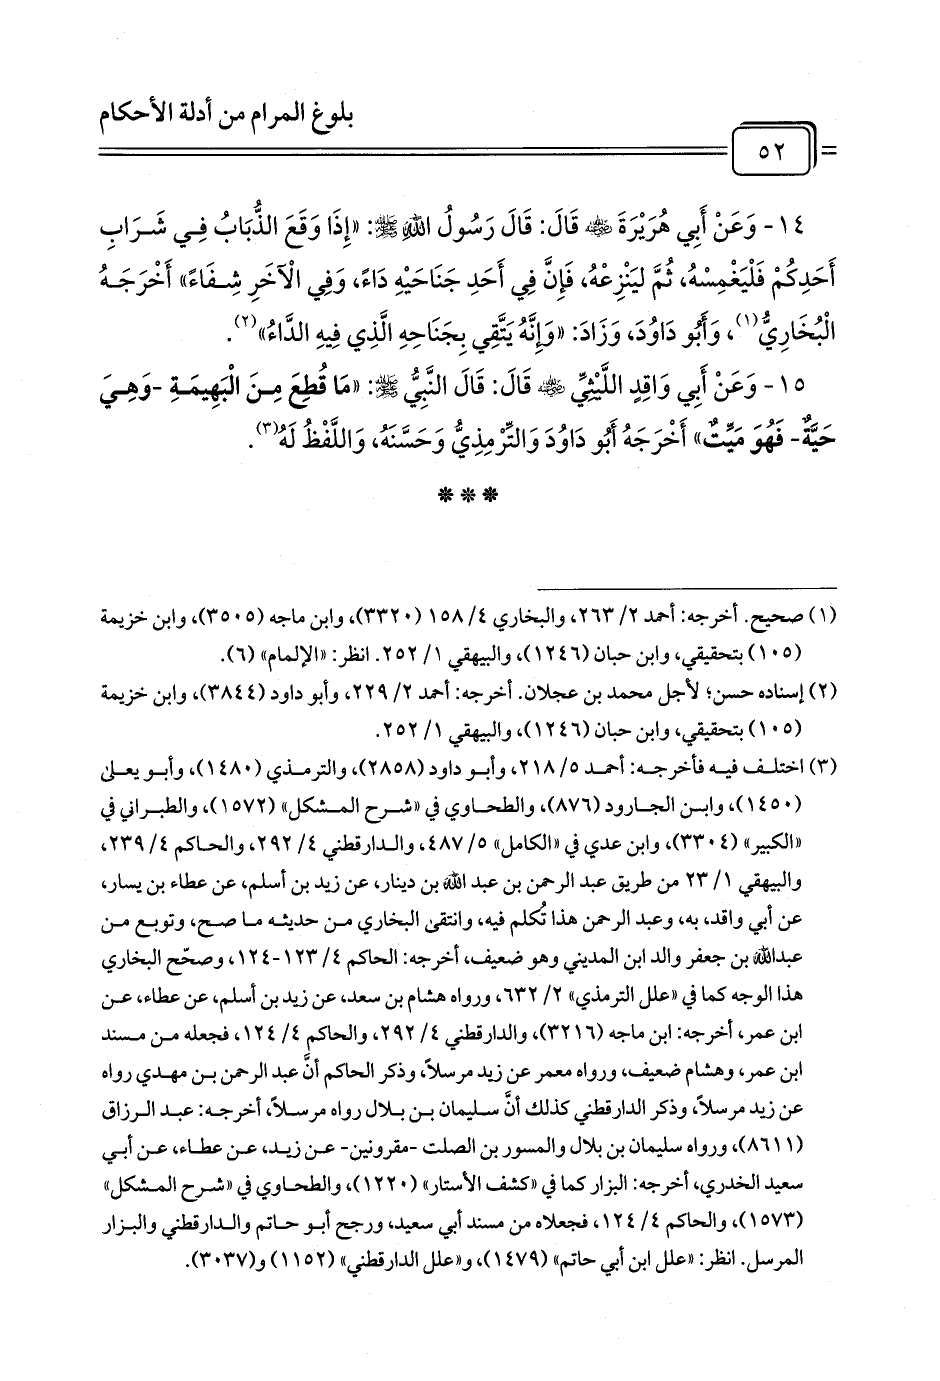 بلوغ المرام من أدلة الأحكام
٥٢
١٤- وَعَنْ أَبِي هُرَيْرَةَ ﵁ قَالَ: قَالَ رَسُولُ اللهِ ﷺ: «إِذَا وَقَعَ الذُّبَابُ فِي شَرَابِ
أَحَدِكُمْ فَلْيَغْمِسْهُ، ثُمَّ لِيَنْزِعْهُ، فَإِنَّ فِي أَحَدِ جَنَاحَيْهِ دَاءً، وَفِي الْآخَرِ شِفَاءً» أَخْرَجَهُ
الْبُخَارِيُّ(١)، وَأَبُو دَاوُدَ، وَزَادَ: «وَإِنَّهُ يَتَّقِي بِجَنَاحِهِ الَّذِي فِيهِ الدَّاءُ»(٢).
١٥- وَعَنْ أَبِي وَاقِدٍ اللَّيْثِيِّ ﵁ قَالَ: قَالَ النَّبِيُّ ﷺ: «مَا قُطِعَ مِنَ الْبَهِيمَةِ -وَهِيَ
حَيَّةٌ- فَهُوَ مَيِّتٌ» أَخْرَجَهُ أَبُو دَاوُدَ وَالتِّرْمِذِيُّ وَحَسَّنَهُ، وَاللَّفْظُ لَهُ(٣).
* * *
(١) صحيح. أخرجه: أحمد ٢/ ٢٦٣، والبخاري ٤/ ١٥٨ (٣٣٢٠)، وابن ماجه (٣٥٠٥)، وابن خزيمة
(١٠٥) بتحقيقي، وابن حبان (١٢٤٦)، والبيهقي ١/ ٢٥٢. انظر: «الإلمام» (٦).
(٢) إسناده حسن؛ لأجل محمد بن عجلان. أخرجه: أحمد ٢/ ٢٢٩، وأبو داود (٣٨٤٤)، وابن خزيمة
(١٠٥) بتحقيقي، وابن حبان (١٢٤٦)، والبيهقي ١/ ٢٥٢.
(٣) اختلف فيه فأخرجه: أحمد ٥/ ٢١٨، وأبو داود (٢٨٥٨)، والترمذي (١٤٨٠)، وأبو يعلى
(١٤٥٠)، وابن الجارود (٨٧٦)، والطحاوي في «شرح المشكل» (١٥٧٢)، والطبراني في
«الكبير» (٣٣٠٤)، وابن عدي في «الكامل» ٥/ ٤٨٧، والدارقطني ٤/ ٢٩٢، والحاكم ٤/ ٢٣٩،
والبيهقي ١/ ٢٣ من طريق عبد الرحمن بن عبد الله بن دينار، عن زيد بن أسلم، عن عطاء بن يسار،
عن أبي واقد، به، وعبد الرحمن هذا تُكلم فيه، وانتقى البخاري من حديثه ما صح، وتوبع من
عبدالله بن جعفر والد ابن المديني وهو ضعيف، أخرجه: الحاكم ٤/ ١٢٣-١٢٤، وصحّح البخاري
هذا الوجه كما في «علل الترمذي» ٢/ ٦٣٢، ورواه هشام بن سعد، عن زيد بن أسلم، عن عطاء، عن
ابن عمر، أخرجه: ابن ماجه (٣٢١٦)، والدارقطني ٤/ ٢٩٢، والحاكم ٤/ ١٢٤، فجعله من مسند
ابن عمر، وهشام ضعيف، ورواه معمر عن زيد مرسلاً، وذكر الحاكم أنَّ عبد الرحمن بن مهدي رواه
عن زيد مرسلاً، وذكر الدارقطني كذلك أنَّ سليمان بن بلال رواه مرسلاً، أخرجه: عبد الرزاق
(٨٦١١)، ورواه سليمان بن بلال والمسور بن الصلت -مقرونين- عن زيد، عن عطاء، عن أبي
سعيد الخدري، أخرجه: البزار كما في «كشف الأستار» (١٢٢٠)، والطحاوي في «شرح المشكل»
(١٥٧٣)، والحاكم ٤/ ١٢٤، فجعلاه من مسند أبي سعيد، ورجح أبو حاتم والدارقطني والبزار
المرسل. انظر: «علل ابن أبي حاتم» (١٤٧٩)، و«علل الدارقطني» (١١٥٢) و(٣٠٣٧).